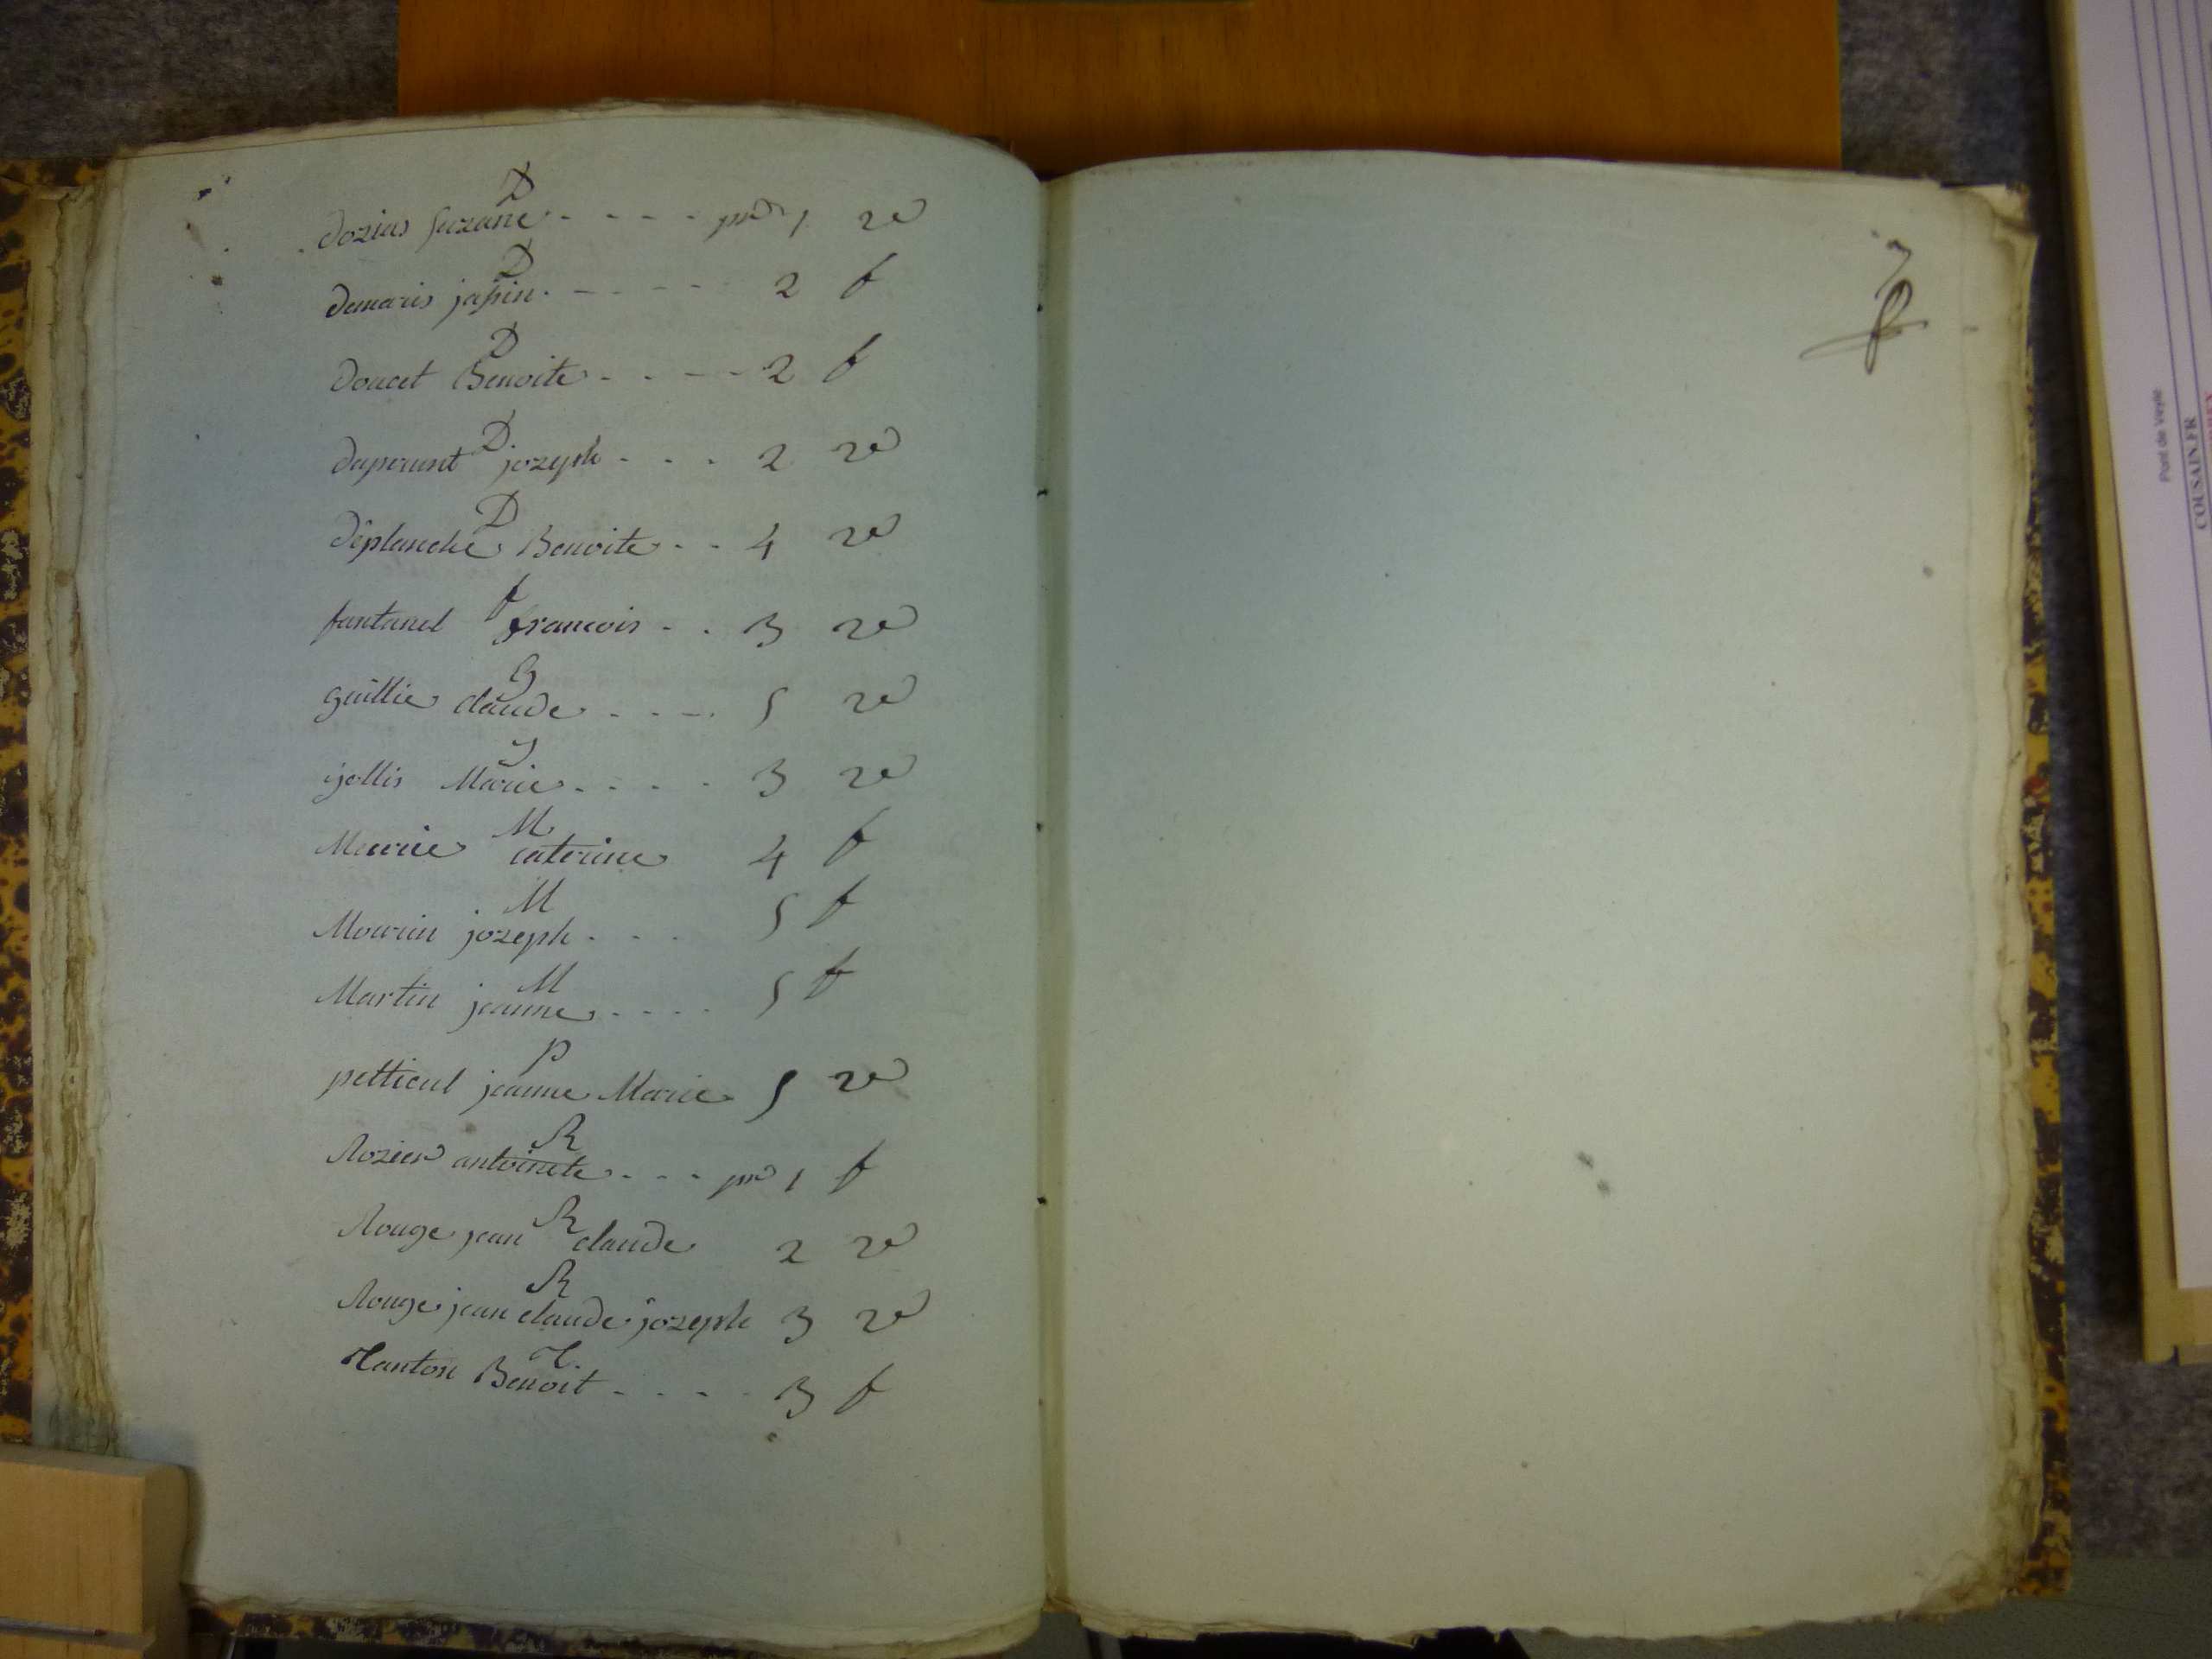 D
dozias suzane - - - - pr 1 re
D
demaris jassin - - - - - 2 f
D
doucet Benoite - - - - 2 f
D.
duperunt jozeph - - - 2 re
D
deplanche Benoite - - 4 re
f
fantanel francois - - 3 re
G
guillie claude - - - - 5 re
J
jollis Marie - - - - 3 re
M
Meurie caterine 4 f
M
Mourin jozeph - - - 5 f
M
Martin jeanne - - - - 5 f
P
petticul jeanne Marie 5 re
R
Rozier antoinete - - - pr 1 f
R
Rouge jean claude 2 re
R
Rouge jean claude jozeph 3 re
T.
Tanton Benoit - - - - 3 f
7
Pont de Veyle
COUSAIN.FR